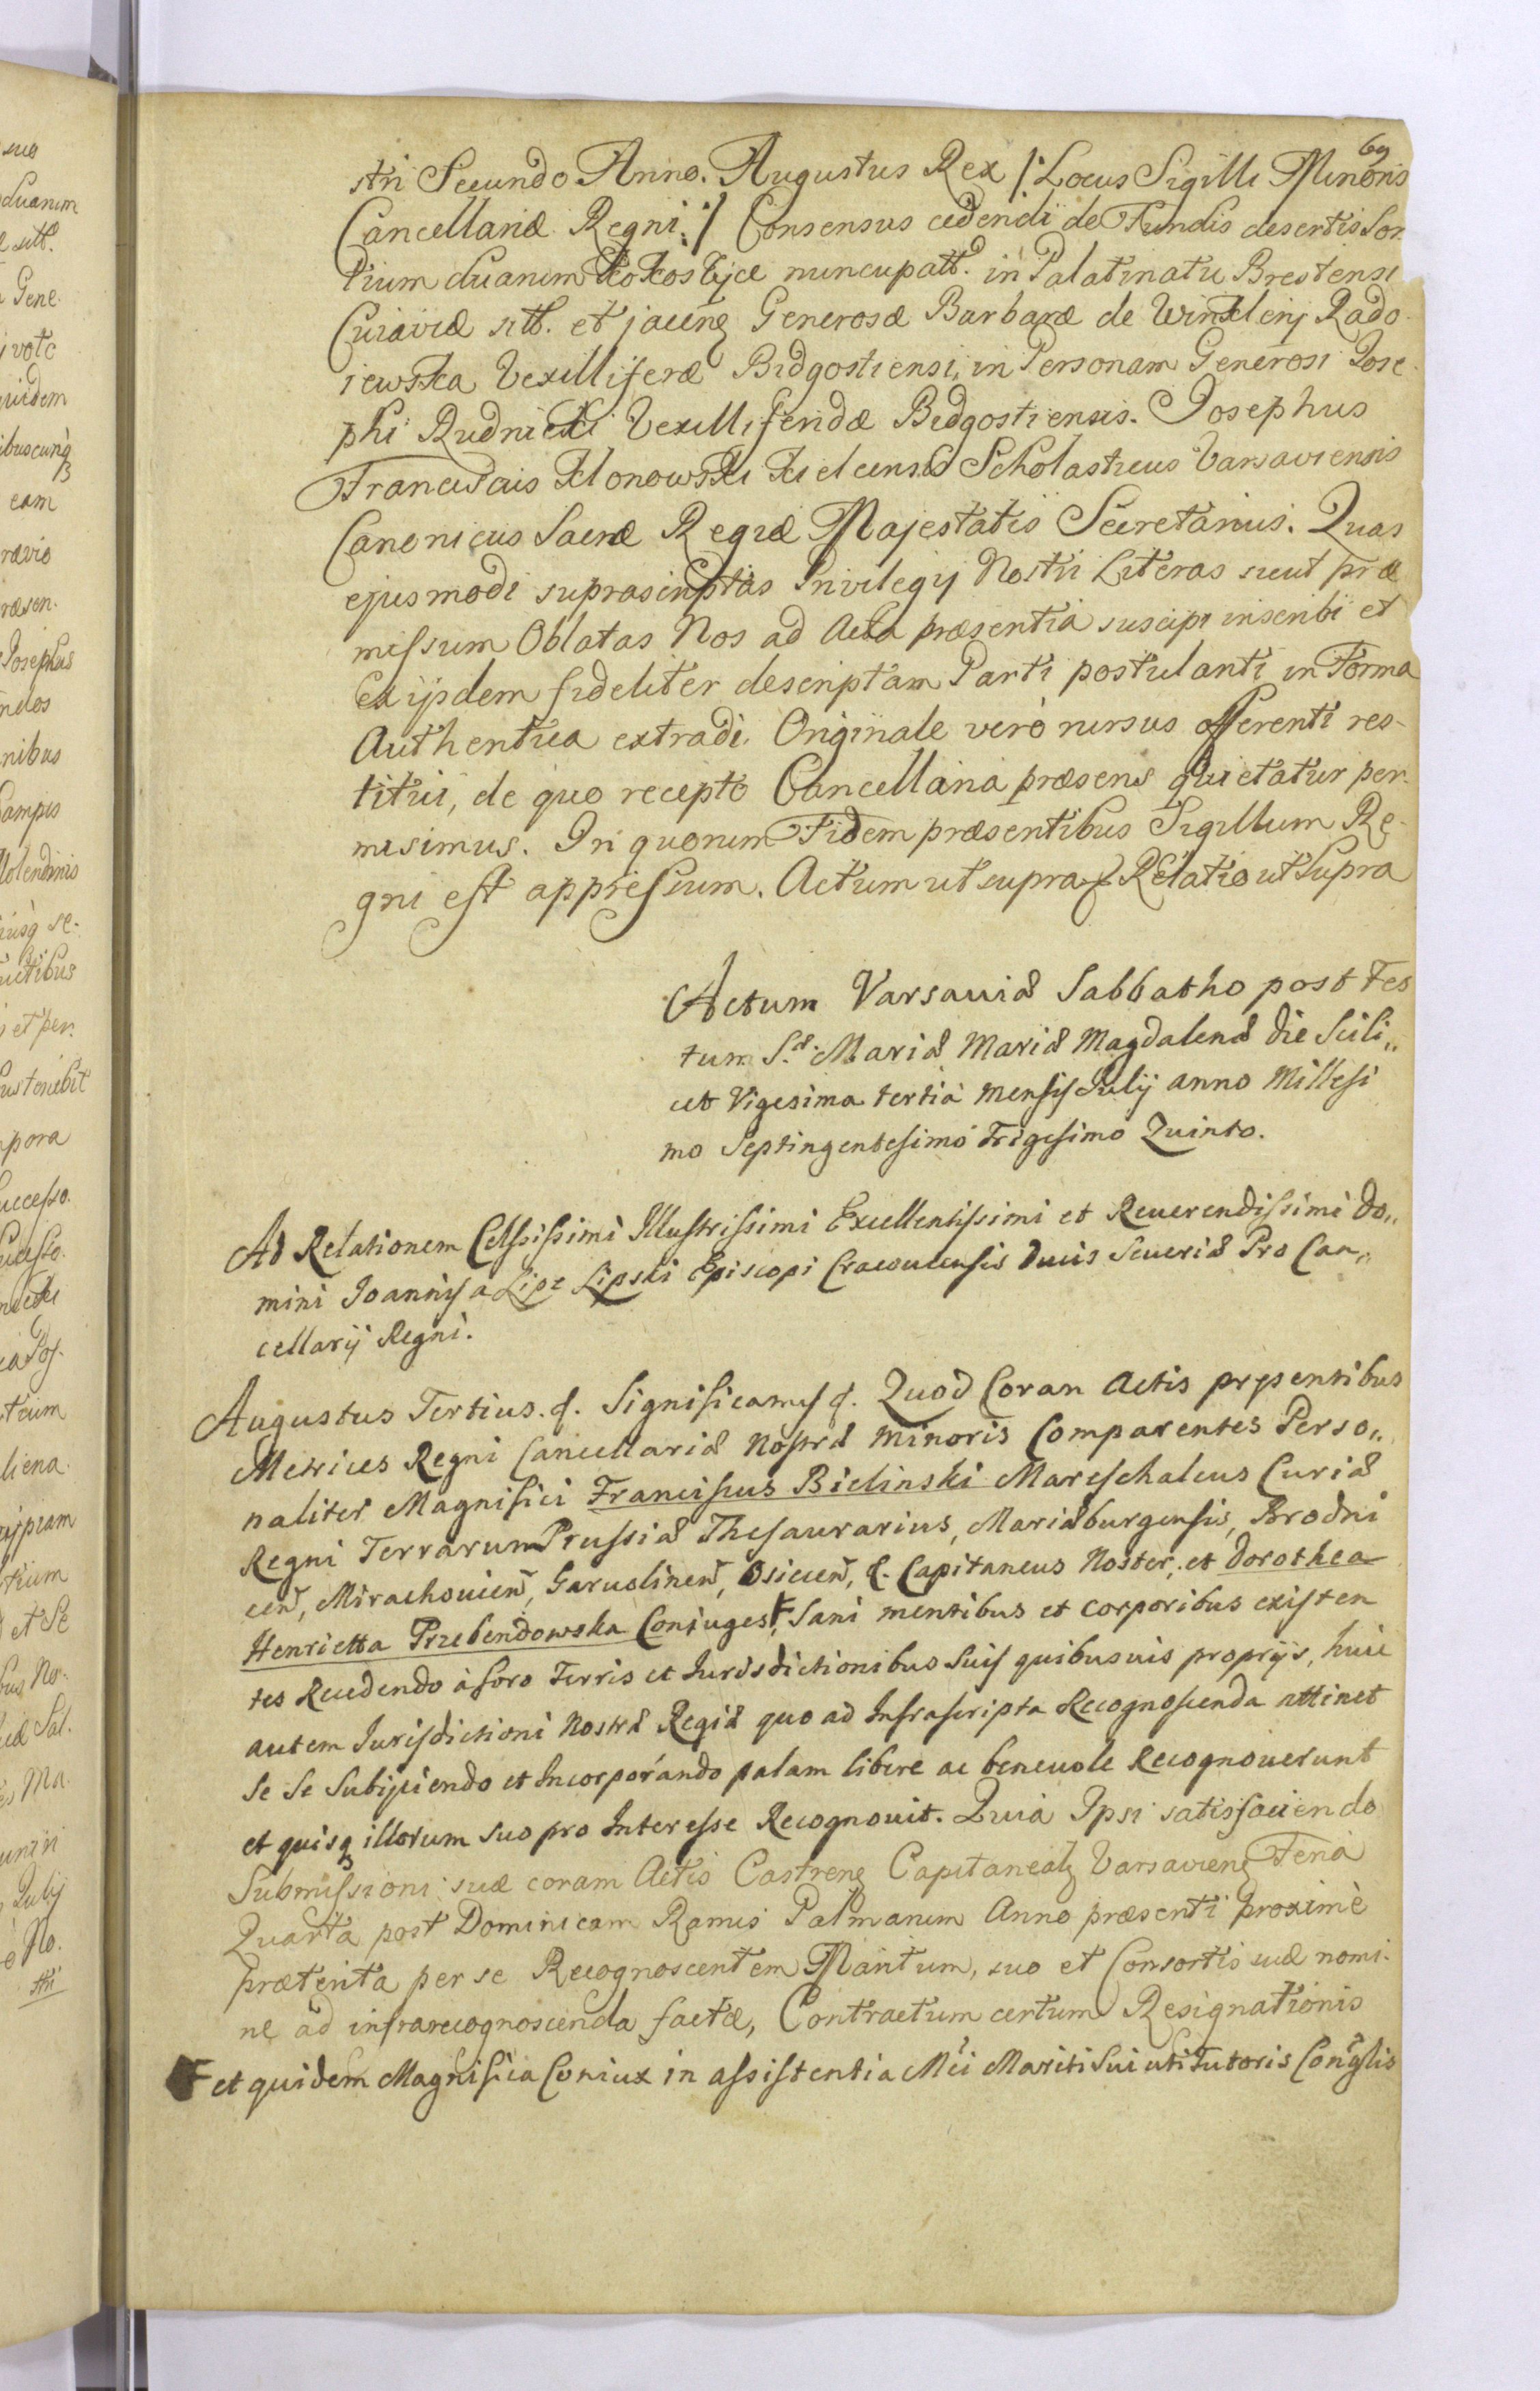 69
stri Secundo Anno. Augustus Rex /: Locus Sigilli Minoris
Cancellariæ Regni :/ Consensus cedendi de Fundis desertis Sor
tium duarum nuncupatt. in Palatinatu Brestensi
Cuiaviæ sitt. et jaceñ Generosæ Barbaræ de Winklerij Rado
iewska Vexilliferæ Bidgostiensi, in Personam Generosi Jose
phi Rudnicki Vexilliferidæ Bidgostiensis. Josephus
Franciscus Klonowski Kielcensis Scholasticus Varsaviensis
Canonicus Sacræ Regiæ Majestatis Secretarius. Quas
ejusmodi suprascriptas Privilegij Nostri Literas sicut præ
missum Oblatas Nos ad Acta præsentia suscipi inscribi et
ex ijsdem fideliter descriptam Parti postulanti in Forma
Authentica extradi. Originale verò rursus offerenti res-
titui, de quo recepto Cancellaria præsens quietatur per
misimus. In quorum Fidem præsentibus Sigillum Re-
gni est appressum. Actum ut supra Relatio ut Supra
Actum Varsauiæ Sabbatho post Fes
tum S.æ Mariæ Mariæ Magdalenæ die Scili„
cet Vigesima tertia Mensis Julij anno Millesi
mo Septingentesimo Trigesimo Quinto.
Ad Relationem Celsissimi Illustrissimi Excellentissimi et Reuerendissimi Do„
mini Joannis a Lipe Lipski Episcopi Cracouiensis Ducis Seueriæ Pro Can„
cellarij Regni.
Augustus Tertius. &. Significamus &. Quod Coram Actis præsentibus
Metrices Regni Cancellariæ Nostræ Minoris Comparentes Perso„
naliter Magnifici Franciscus Bielinski Mareschalcus Curiæ
Regni Terrarum Prussiæ Thesaurarius, Mariæburgensis, Brodni
ceñ, Mirachouieñ, Garuolineñ, Osieceñ, &. Capitaneus Noster, et Dorothea
Henrietta Przebendowska Conjuges, Sani mentibus et corporibus existen
tes Recedendo à foro Terris et Jurisdictionibus Suis quibusuis proprijs, huic
autem Jurisdictioni Nostræ Regiæ quo ad Infrascripta Recognoscenda attinet
Se Se Subijciendo et Incorporando palam libere ac beneuole Recognouerunt
et quisq illorum suo pro Interesse Recognouit. Quia Ipsi satisfaciendo
Submissioni suæ coram Actis Castreñ Capitanealȝ Varsavieñ Feria
Quarta post Dominicam Ramis Palmarum Anno præsenti proximè
præterita per se Recognoscentem Maritum, suo et Consortis suæ nomi-
ne ad infrarecognoscenda factæ, Contractum certum Resignationis
et quidem Magnifica Coniux in assistentia Mci Mariti Sui uti Tutoris Coniglis